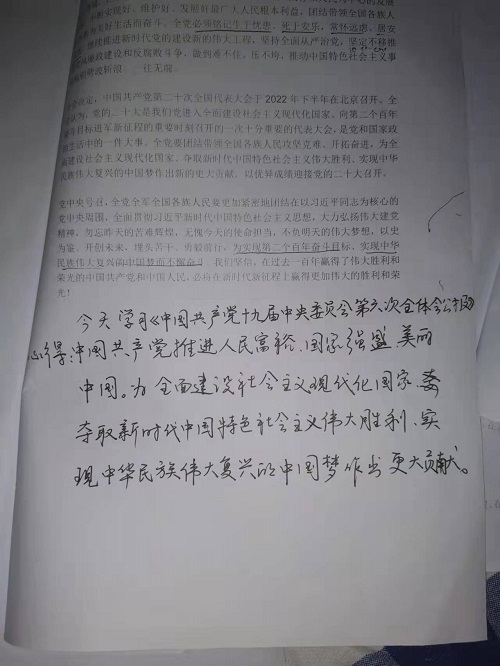 断实现好、维护好、发展好最广大人民根本利益，团结带领全国各族人
美好生活而奋斗。全党必须铭记生于忧患、死于安乐，常怀远虑、居安
继续推进新时代党的建设新的伟大工程，坚持全面从严治党，坚定不移推
风廉政建设和反腐败斗争，做到难不住、压不垮，推动中国特色社会主义事
劈波斩浪、一往无前。
会决定，中国共产党第二十次全国代表大会于2022年下半年在北京召开。全
认为，党的二十大是我们党进入全面建设社会主义现代化国家、向第二个百年
斗目标进军新征程的重要时刻召开的一次十分重要的代表大会，是党和国家政
生活中的一件大事。全党要团结带领全国各族人民攻坚克难、开拓奋进，为全
面建设社会主义现代化国家、夺取新时代中国特色社会主义伟大胜利、实现中华
民族伟大复兴的中国梦作出新的更大贡献，以优异成绩迎接党的二十大召开。
党中央号召，全党全军全国各族人民要更加紧密地团结在以习近平同志为核心的
党中央周围，全面贯彻习近平新时代中国特色社会主义思想，大力弘扬伟大建党
精神，勿忘昨天的苦难辉煌，无愧今天的使命担当，不负明天的伟大梦想，以史
为鉴、开创未来，埋头苦干、勇毅前行，为实现第二个百年奋斗目标、实现中华
民族伟大复兴的中国梦而不懈奋斗。我们坚信，在过去一百年赢得了伟大胜利和
荣光的中国共产党和中国人民，必将在新时代新征程上赢得更加伟大的胜利和荣
光！
今天学习《中国共产党十九届中央委员会第六次全体会公报》
心得：中国共产党推进人民富裕、国家强盛、美丽
中国。为全面建设社会主义现代化国家、要
夺取新时代中国特色社会主义伟大胜利、实
现中华民族伟大复兴的中国梦作出更大贡献。